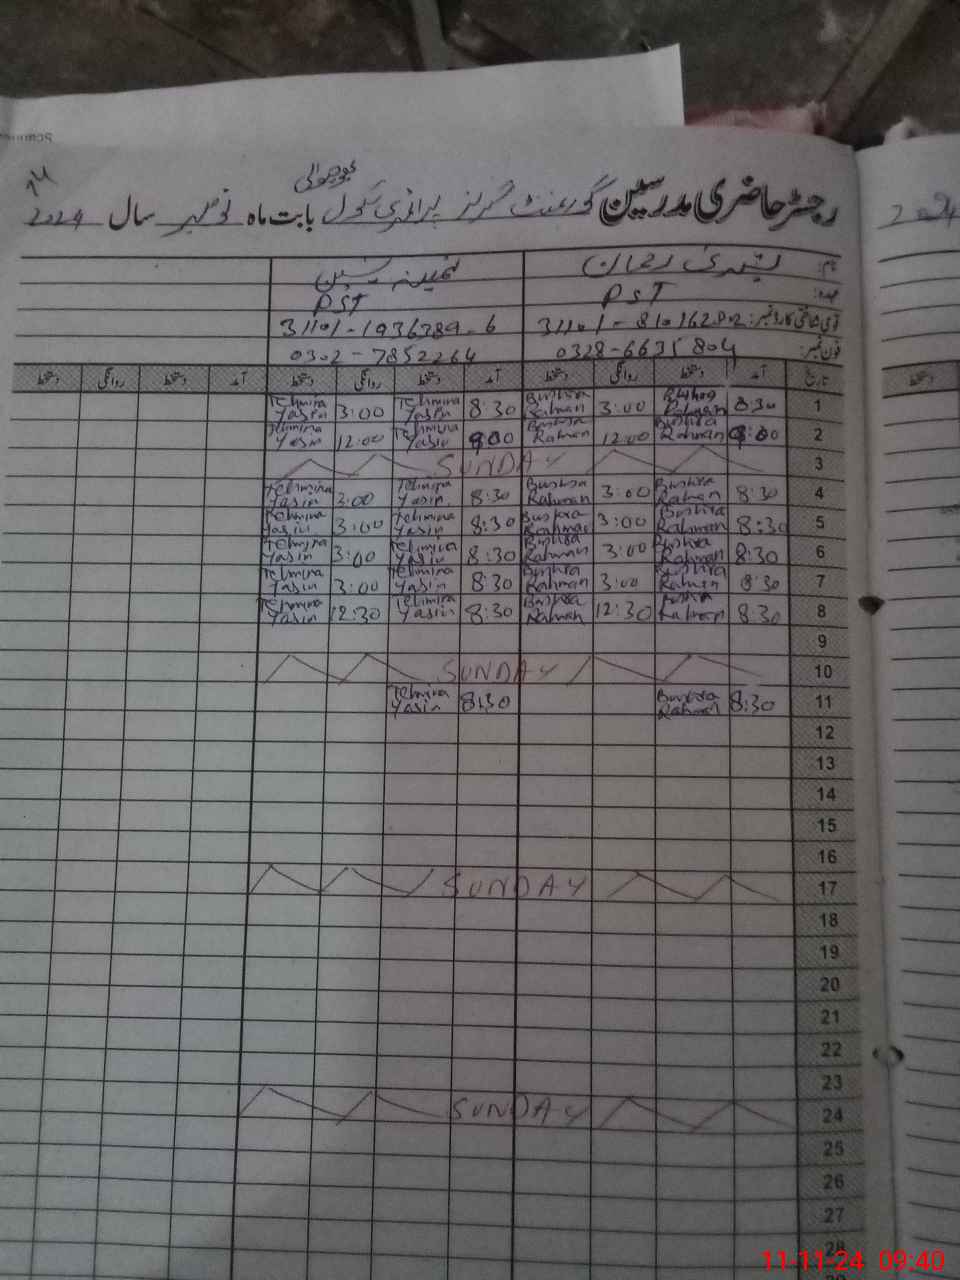 رجسٹر حاضری مدرسین گورنمنٹ گرلز پرائمری سکول بابت ماہ نومبر سال 2024
نام: بشریٰ رحمان ثمینہ یٰسین
عہدہ: PST PST
آئی شناختی کارڈ نمبر: 31101-810162802 31101-1936789-6
فون نمبر: 0328-6635804 0302-7852264
تاریخ آمد دستخط روانگی دستخط آمد دستخط روانگی دستخط آمد دستخط روانگی دستخط
1 8:30 Bushra Rahman 3:00 Bushra Rahman 8:30 Tehmina Yasin 3:00 Tehmina Yasin
2 9:00 Bushra Rahman 12:00 Bushra Rahman 9:00 Tehmina Yasin 12:00 Tehmina Yasin
3 SUNDAY
4 8:30 Bushra Rahman 3:00 Bushra Rahman 8:30 Tehmina Yasin 3:00 Tehmina Yasin
5 8:30 Bushra Rahman 3:00 Bushra Rahman 8:30 Tehmina Yasin 3:00 Tehmina Yasin
6 8:30 Bushra Rahman 3:00 Bushra Rahman 8:30 Tehmina Yasin 3:00 Tehmina Yasin
7 8:30 Bushra Rahman 3:00 Bushra Rahman 8:30 Tehmina Yasin 3:00 Tehmina Yasin
8 8:30 Bushra Rahman 12:30 Bushra Rahman 8:30 Tehmina Yasin 12:30 Tehmina Yasin
9
10 SUNDAY
11 8:30 Bushra Rahman 8:30 Tehmina Yasin
12
13
14
15
16
17 SUNDAY
18
19
20
21
22
23
24 SUNDAY
25
26
27
28
11-11-24 09:40